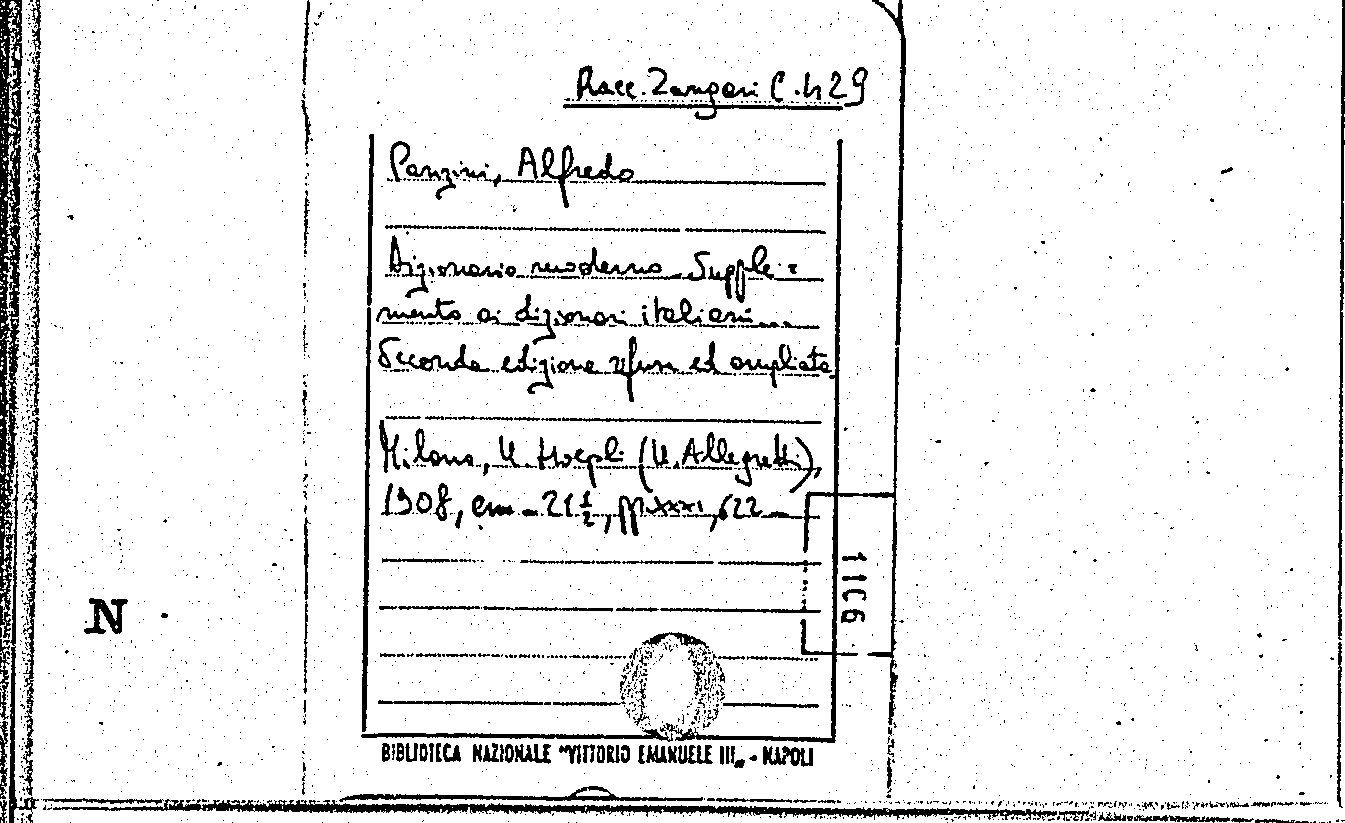 Racc. Zangari C. 429
Panzini, Alfredo
Dizionario moderno. Supple=
mento ai dizionari italiani....
Seconda edizione rifusa ed ampliata
Milano, U. Hoepli (U. Allegretti),
1908, cm. 21 1/2, pp. XXXI, 622
1106
N
BIBLIOTECA NAZIONALE "VITTORIO EMANUELE III„ - NAPOLI